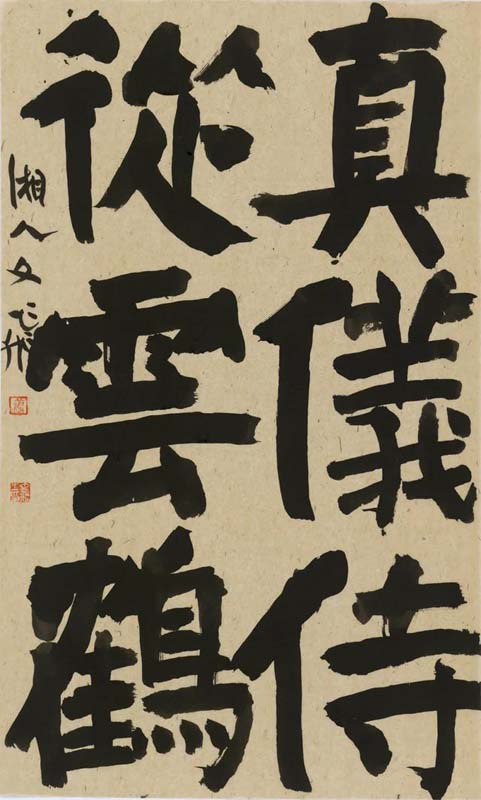 真儀侍
從雲鶴
湘人文